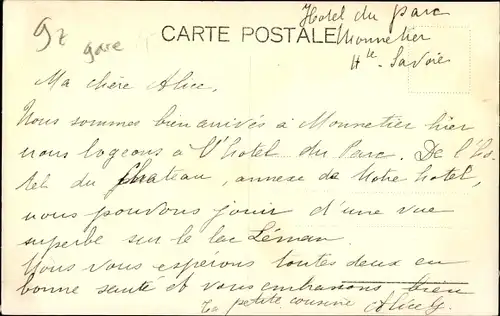 Hotel du Parc
CARTE POSTALE
Monnetier
Hte-Savoie
gare
Ma chère Alice,
Nous sommes bien arrivés à Monnetier hier
nous logeons à l'hôtel du Parc. De l'hô-
tel du château, annexe de notre hôtel,
nous pouvons jouir d'une vue
superbe sur le lac Léman.
Nous vous espérons toutes deux en
bonne santé et vous embrassons bien
Ta petite cousine Alice G.